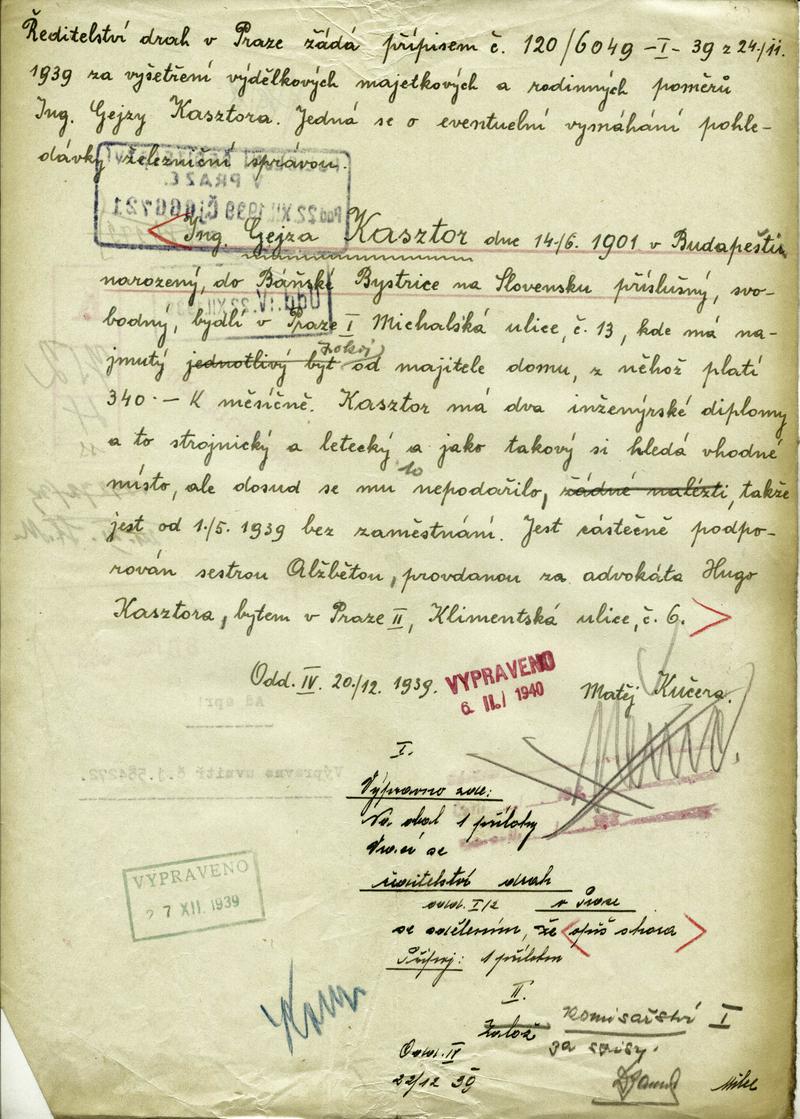 Ředitelství drah v Praze žádá přípisem č. 120/6049 -I- 39 z 24./11.
1939 za vyšetření výdělkových majetkových a rodinných poměrů
Ing. Gejzy Kasztora. Jedná se o eventuelní vymáhání pohle-
dávky železniční správou.
V PRAZE.
Pod 22 XII. 1939 Čj 666721
Ing. Gejza Kasztor dne 14./6. 1901 v Budapešti
narozený, do Báňské Bystrice na Slovensku příslušný, svo-
Odd. IV. 22 XII. 1939
bodný, bydlí v Praze I Michalská ulice, č. 13, kde má na-
pokoj
jmutý jednotlivý byt od majitele domu, z něhož platí
340·— K měsíčně. Kasztor má dva inženýrské diplomy
a to strojnický a letecký a jako takový si hledá vhodné
to
místo, ale dosud se mu nepodařilo, žádné nalézti, takže
jest od 1./5. 1939 bez zaměstnání. Jest částečně podpo-
rován sestrou Alžbětou, provdanou za advokáta Hugo
Kasztora, bytem v Praze II, Klimentská ulice, č. 6.
Odd. IV. 20./12. 1939.
VYPRAVENO
6. II. 1940
Matěj Kučera.
I.
Výpravno zde:
1 přílohy
Vrací se
ředitelství drah
odd. I/2 v Praze
se sdělením, že opis shora
Připoj: 1 přílohu
Výpravna uvnitř č.j. 584272.
VYPRAVENO
27 XII. 1939
II.
Založ
Komisařství I
za spisy.
Odd. IV
22/12 39